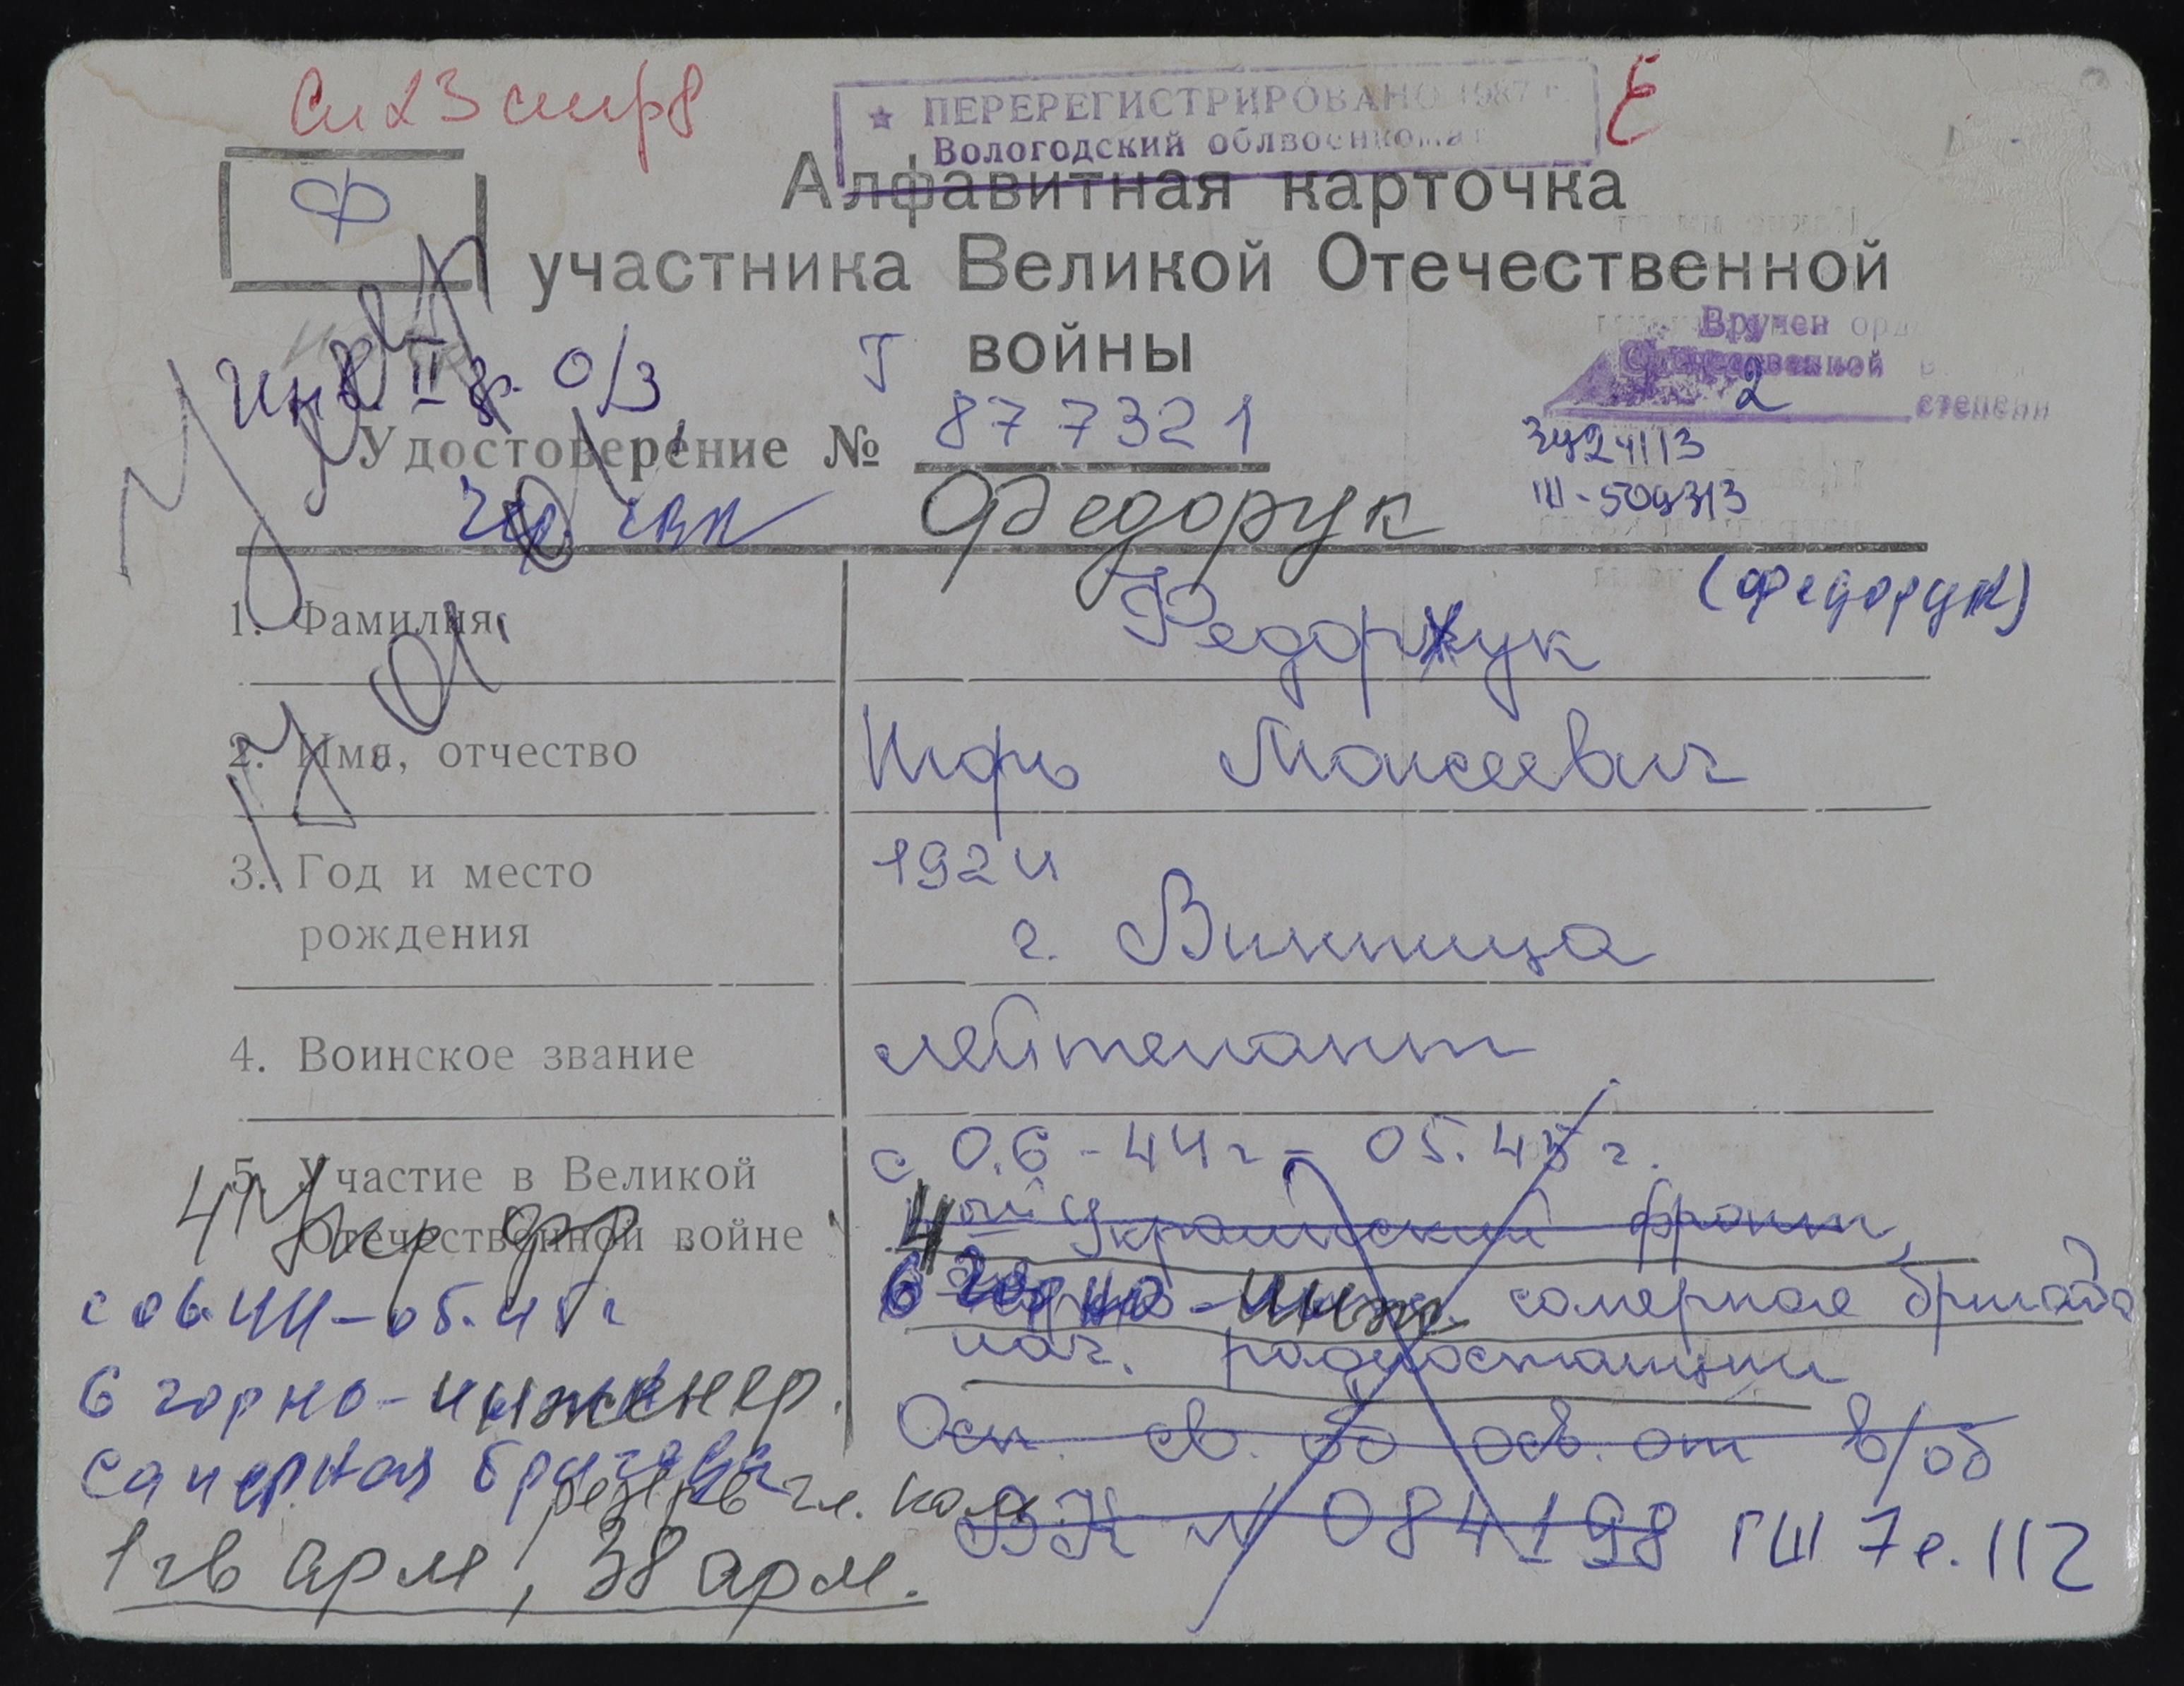 ★ ПЕРЕРЕГИСТРИРОВАНО 1987 г.
Вологодский облвоенкомат
Е
Ф
Алфавитная карточка
участника Великой Отечественной
войны
Вручен орд
Отечественной
2 степени
Инв. II гр. О/З
Г
Удостоверение № 877321
3424113
Ш-509313
Федорук
(Федорук)
1. Фамилия
Федорук
2. Имя, отчество
Моисеевич
3. Год и место
рождения
1924
г. Винница
4. Воинское звание
лейтенант
5. Участие в Великой
Отечественной войне
с 0.6-44г - 05.45 г.
4ый Украинский фронт,
6 горно-инж. саперная бригада
нач. радиостанции
Осн. св. об осв. от в/об
ВК № 084198 ГШ 7 е. 112
4 Укр фр
с 06.44-05.45г
6 горно-инженер.
саперная бригада
резерв гл. ком.
1 гв арм, 38 арм.